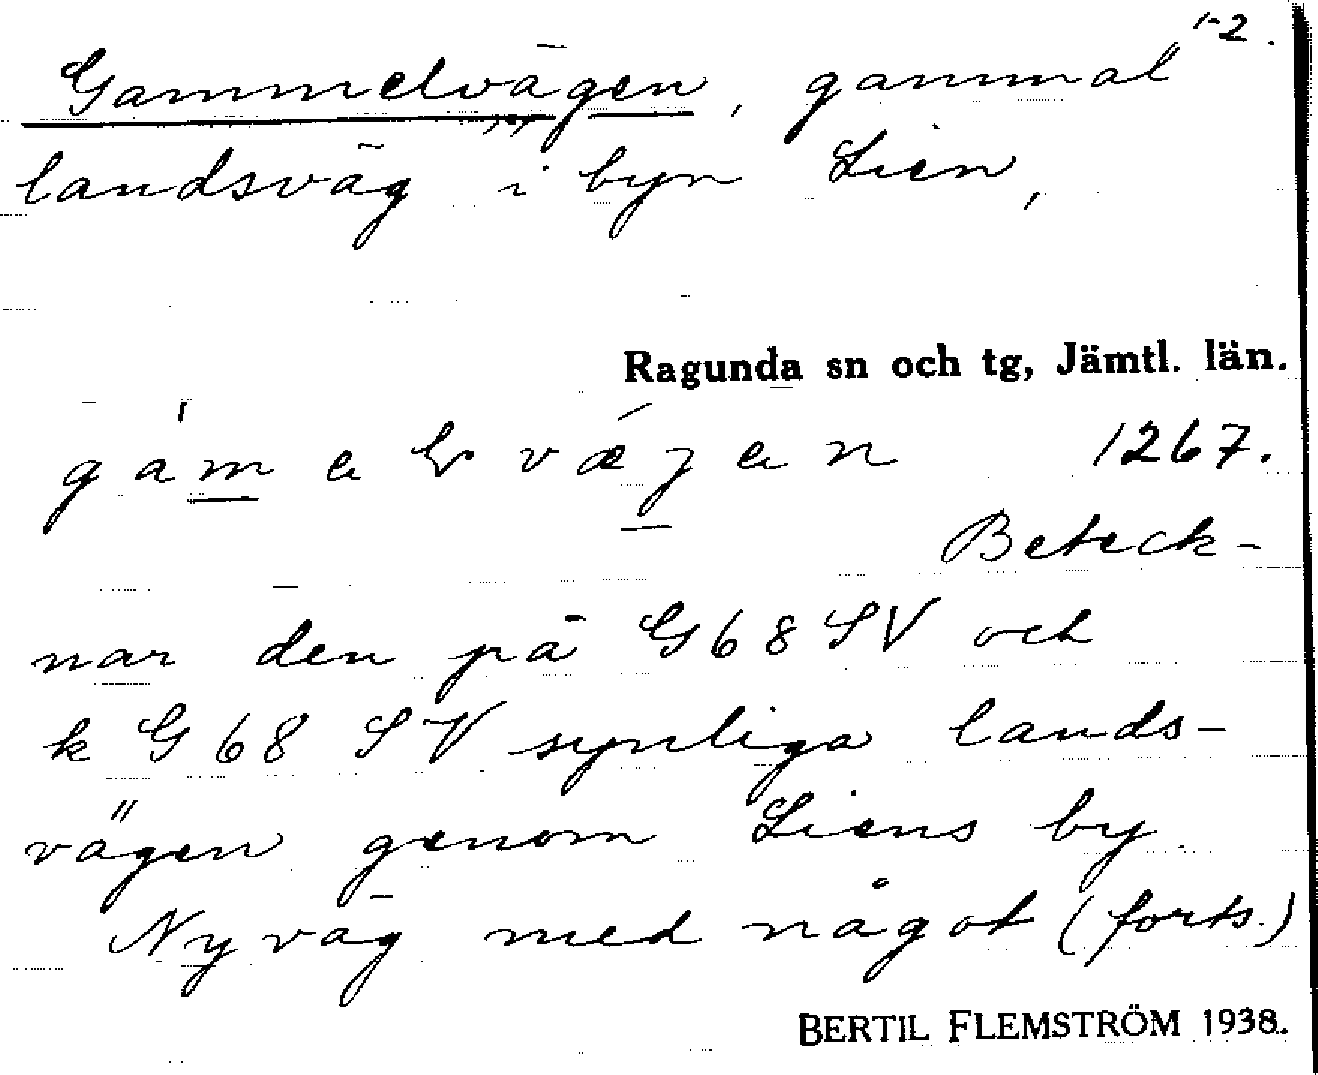 1-2.
Gammelvägen, gammal
landsväg i byn Lien,
Ragunda sn och tg, Jämtl. län.
1267.
Beteck-
nar den på G 68 SV och
k G 68 SV synliga lands-
vägen genom Liens by.
Ny väg med något (forts.)
BERTIL FLEMSTRÖM 1938.